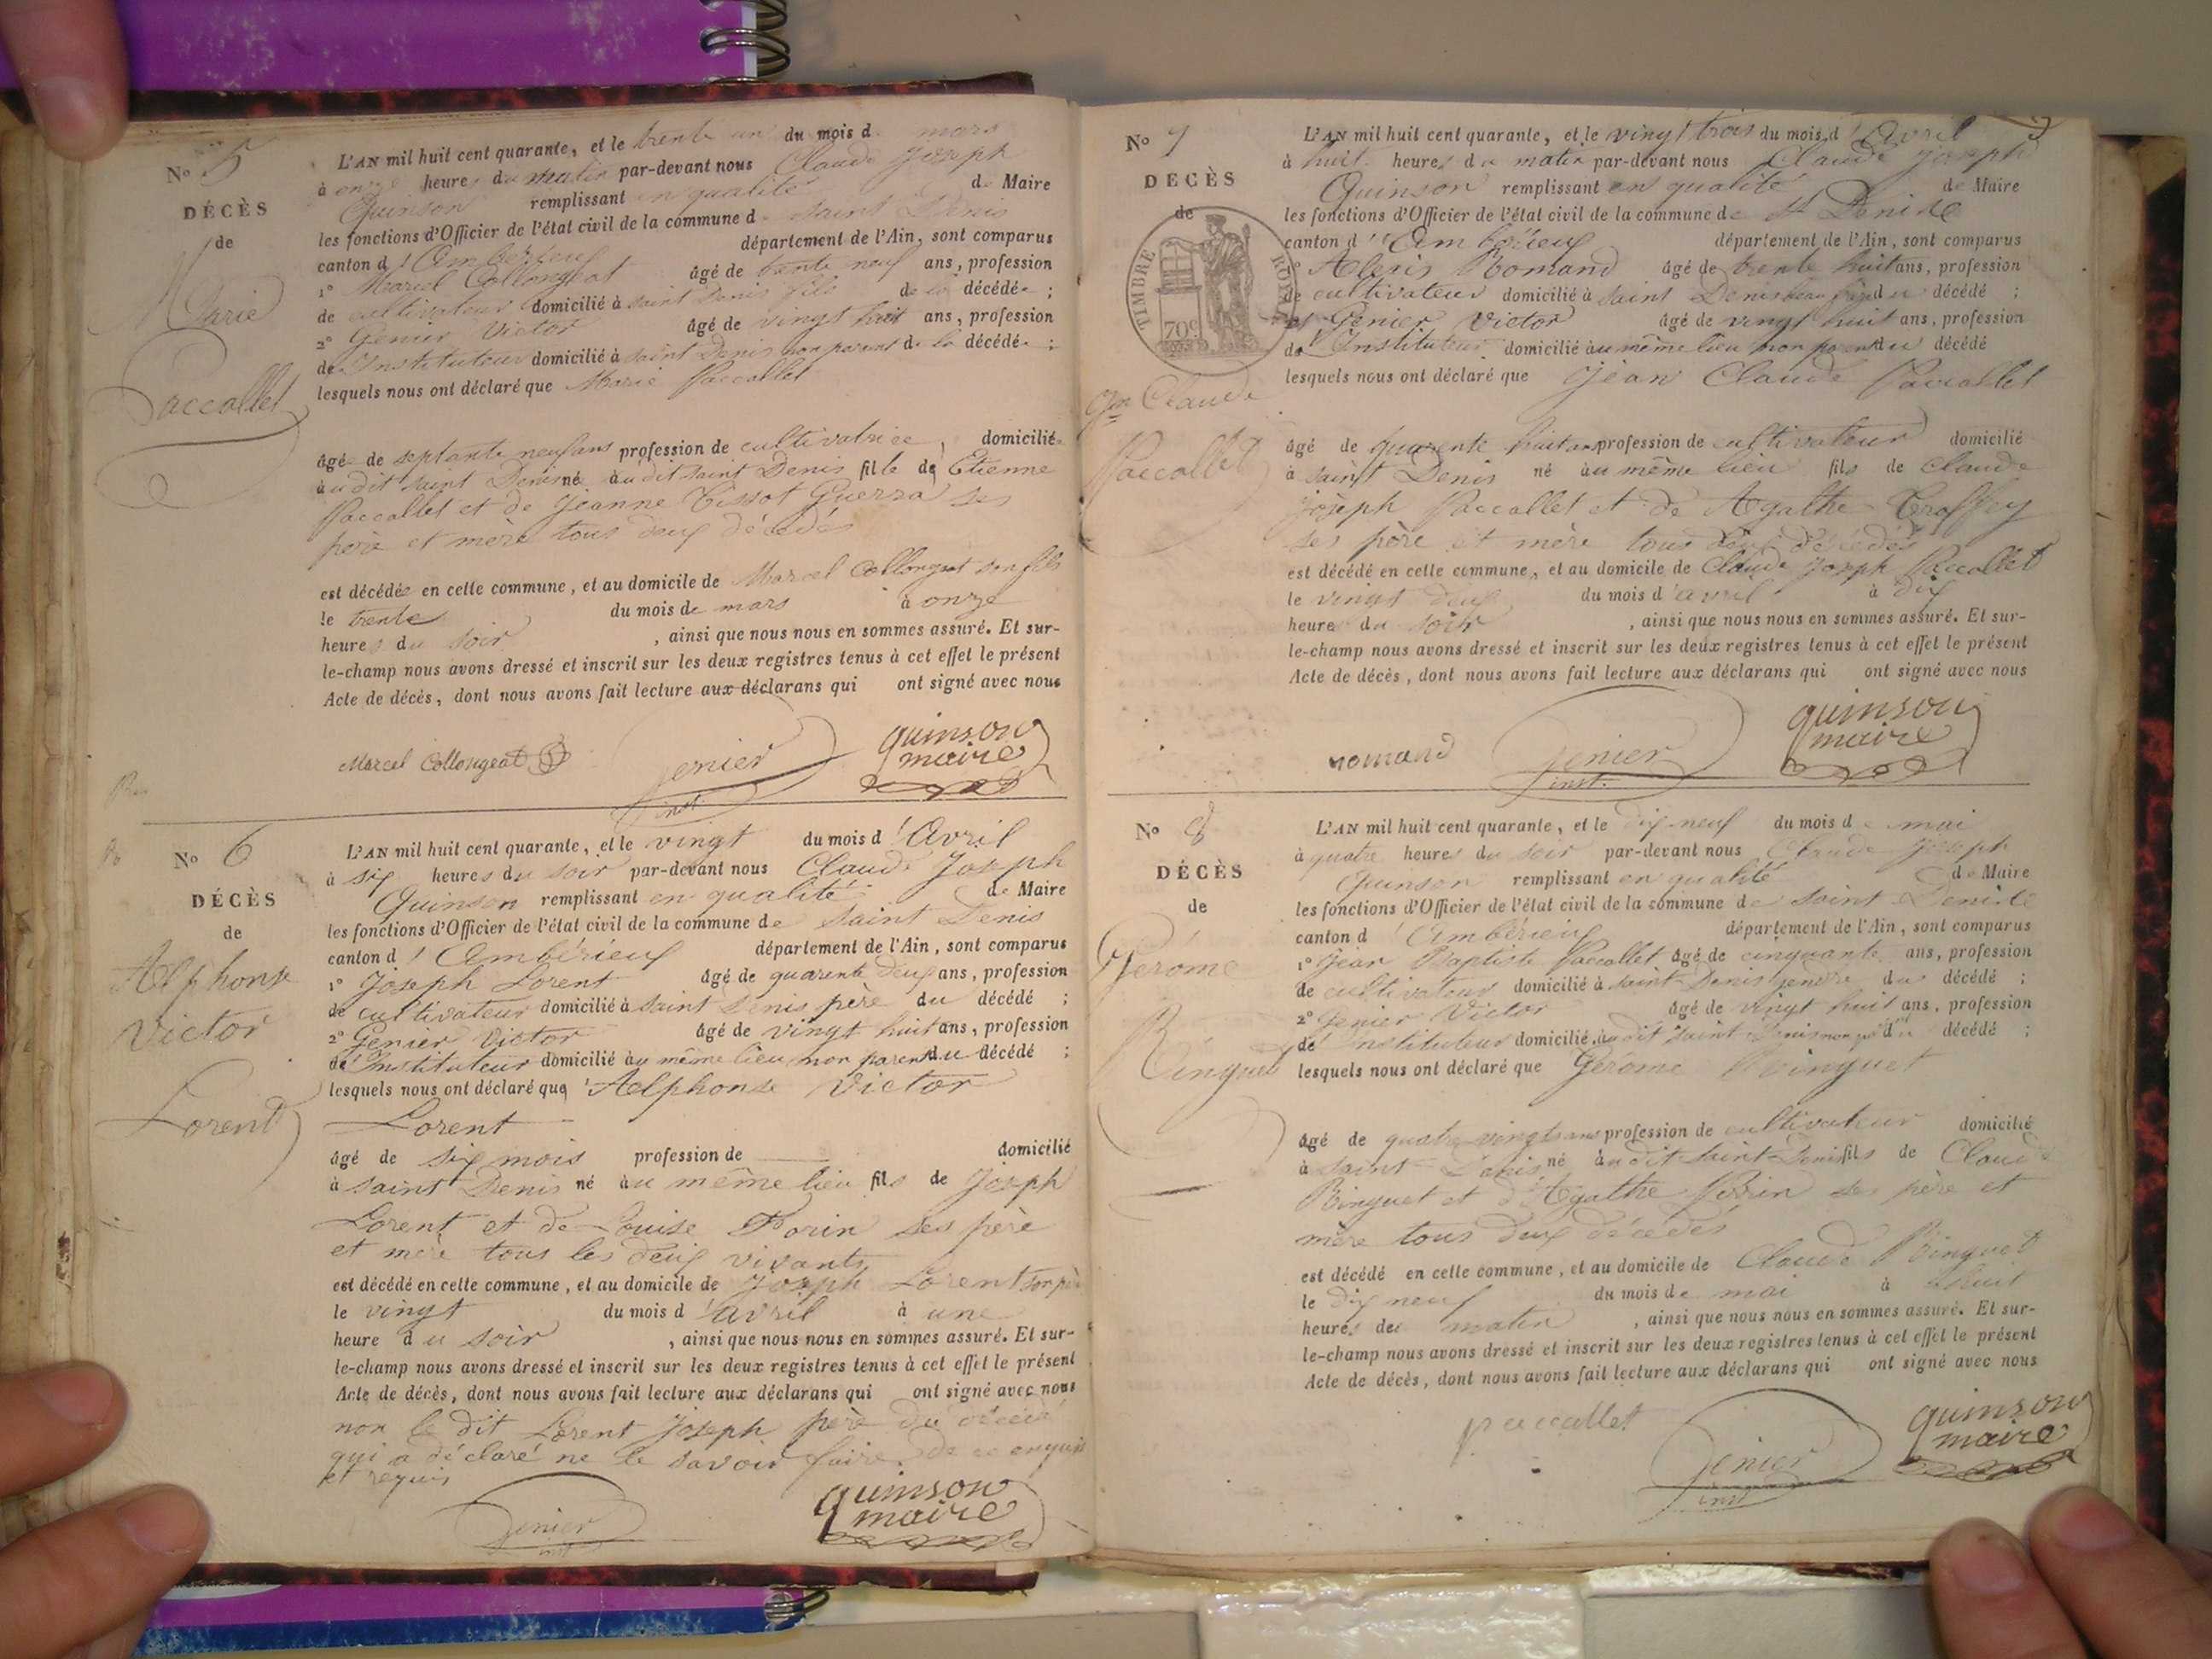 No 5
DÉCÈS
de
Marie
Paccallet
L'AN mil huit cent quarante, et le trente un du mois de mars
à onze heures du matin par-devant nous Claude Joseph
Quinson remplissant en qualité de Maire
les fonctions d'Officier de l'état civil de la commune de saint Denis
canton d'Ambérieux département de l'Ain, sont comparus
1° Marcel Collongeat âgé de trente neuf ans, profession
de cultivateur domicilié à saint Denis fils de la décédée ;
2° Genier Victor âgé de vingt huit ans, profession
de Instituteur domicilié à saint Denis non parent de la décédée ;
lesquels nous ont déclaré que Marie Paccallet
âgée de septante neuf ans profession de cultivatrice, domicilié
audit saint Denis né audit saint Denis fille de Etienne
Paccallet et de Jeanne Tissot Guerra ses
père et mère tous deux décédés
est décédée en cette commune, et au domicile de Marcel Collongeat son fils
le trente du mois de mars à onze
heures du soir, ainsi que nous nous en sommes assuré. Et sur-
le-champ nous avons dressé et inscrit sur les deux registres tenus à cet effet le présent
Acte de décès, dont nous avons fait lecture aux déclarans qui ont signé avec nous
Marcel Collongeat Genier inst. quinson maire
No 6
DÉCÈS
de
Alphonse
Victor
Lorent
L'AN mil huit cent quarante, et le vingt du mois d'Avril
à six heures du soir par-devant nous Claude Joseph
Quinson remplissant en qualité de Maire
les fonctions d'Officier de l'état civil de la commune de saint Denis
canton d'Ambérieux département de l'Ain, sont comparus
1° Joseph Lorent âgé de quarente deux ans, profession
de cultivateur domicilié à saint Denis père du décédé ;
2° Genier Victor âgé de vingt huit ans, profession
de Instituteur domicilié au même lieu non parent du décédé ;
lesquels nous ont déclaré que Alphonse Victor
Lorent
âgé de six mois profession de domicilié
à saint Denis né au même lieu fils de Joseph
Lorent et de Louise Porin ses père
et mère tous les deux vivants
est décédé en cette commune, et au domicile de Joseph Lorent son père
le vingt du mois d'avril à une
heure du soir, ainsi que nous nous en sommes assuré. Et sur-
le-champ nous avons dressé et inscrit sur les deux registres tenus à cet effet le présent
Acte de décès, dont nous avons fait lecture aux déclarans qui ont signé avec nous
non le dit Lorent Joseph père du décédé
qui a déclaré ne le savoir faire de ce enquis
et requis
Genier inst quinson maire
No 7
DÉCÈS
de
TIMBRE ROYAL
70c
Jn Claude
Paccallet
L'AN mil huit cent quarante, et le vingt trois du mois d'Avril
à huit heures du matin par-devant nous Claude Joseph
Quinson remplissant en qualité de Maire
les fonctions d'Officier de l'état civil de la commune de St Denis le
canton d'Ambérieux département de l'Ain, sont comparus
1° Alexis Romand âgé de trente huit ans, profession
de cultivateur domicilié à saint Denis beau frère du décédé ;
2° Genier Victor âgé de vingt huit ans, profession
de Instituteur domicilié au même lieu non parent du décédé
lesquels nous ont déclaré que Jean Claude Paccallet
âgé de quarente huit ans profession de cultivateur domicilié
à saint Denis né au même lieu fils de Claude
Joseph Paccallet et de Agathe Troffey
ses père et mère tous deux décédés
est décédé en cette commune, et au domicile de Claude Joseph Paccallet
le vingt deux du mois d'avril à dix
heures du soir, ainsi que nous nous en sommes assuré. Et sur-
le-champ nous avons dressé et inscrit sur les deux registres tenus à cet effet le présent
Acte de décès, dont nous avons fait lecture aux déclarans qui ont signé avec nous
romand Genier inst. quinson maire
No 8
DÉCÈS
de
Gérome
Ringuet
L'AN mil huit cent quarante, et le dix neuf du mois de mai
à quatre heures du soir par-devant nous Claude Joseph
Quinson remplissant en qualité de Maire
les fonctions d'Officier de l'état civil de la commune de saint Denis le
canton d'Ambérieux département de l'Ain, sont comparus
1° Jean Baptiste Paccallet âgé de cinquante ans, profession
de cultivateur domicilié à saint Denis gendre du décédé ;
2° Genier Victor âgé de vingt huit ans, profession
de Instituteur domicilié audit saint Denis du décédé ;
lesquels nous ont déclaré que Gérome Ringuet
âgé de quatre vingts ans profession de cultivateur domicilié
à saint Denis né audit saint Denis fils de Claude
Ringuet et d'Agathe Perrin ses père et
mère tous deux décédés
est décédé en cette commune, et au domicile de Claude Ringuet
le dix neuf du mois de mai à huit
heures du matin, ainsi que nous nous en sommes assuré. Et sur-
le-champ nous avons dressé et inscrit sur les deux registres tenus à cet effet le présent
Acte de décès, dont nous avons fait lecture aux déclarans qui ont signé avec nous
paccallet Genier inst quinson maire